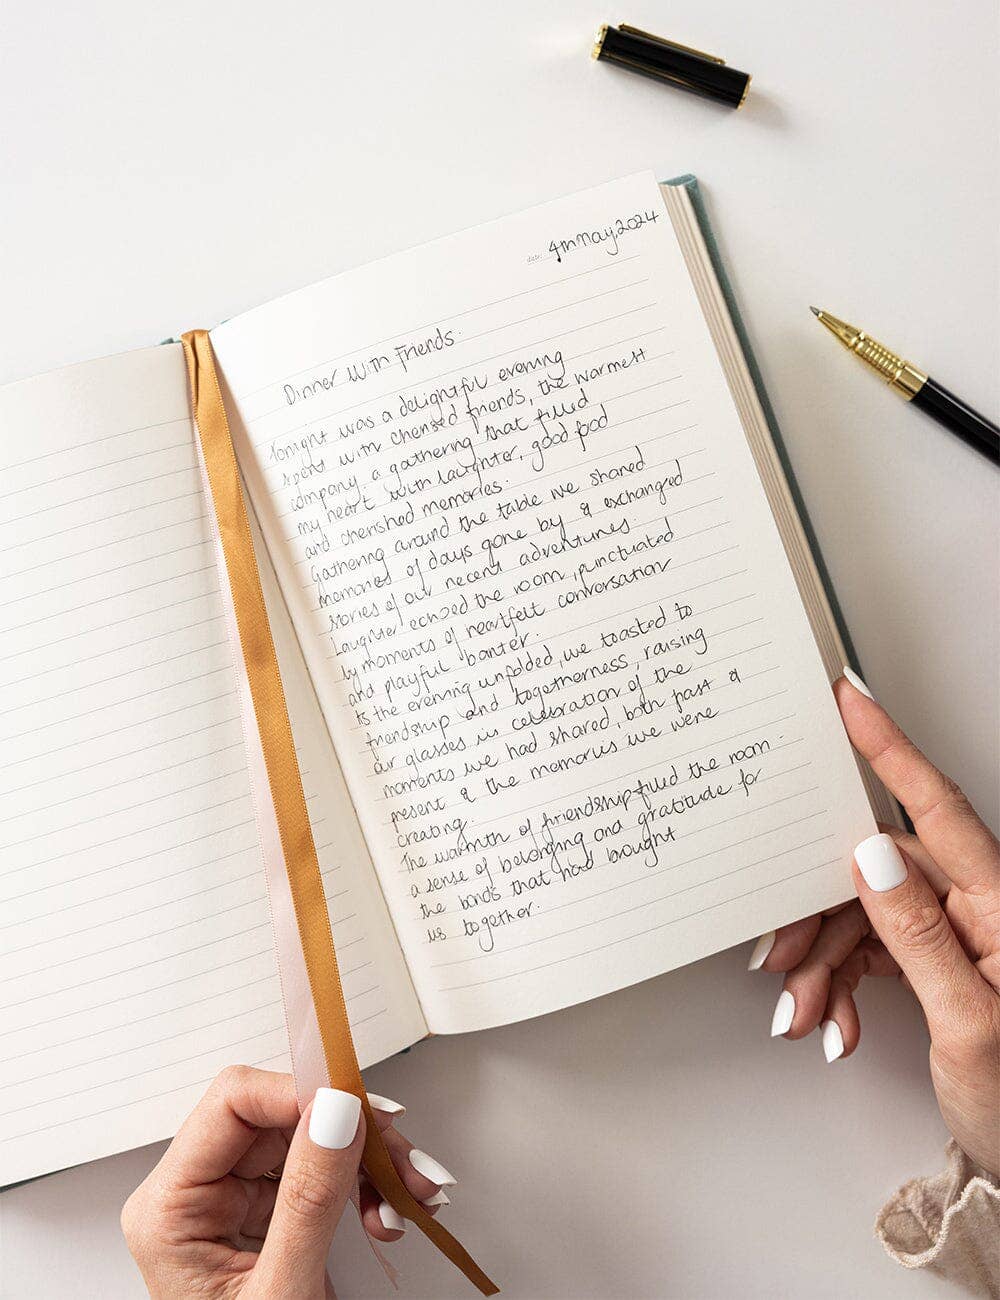 date: 4th May, 2024
Dinner With Friends.
Tonight was a delightful evening
spent with cherised friends, the warmest
company, a gathering that filled
my heart with laughter, good food
and cherished memories.
Gathering around the table we shared
memories of days gone by & exchanged
stories of our recent adventures.
Laughter echoed the room, punctuated
by moments of heartfelt conversation
and playful banter.
As the evening unfolded, we toasted to
friendship and togetherness, raising
our glasses in celebration of the
moments we had shared, both past &
present & the memories we were
creating.
The warmth of friendship filled the room -
a sense of belonging and gratitude for
the bonds that had brought
us together.